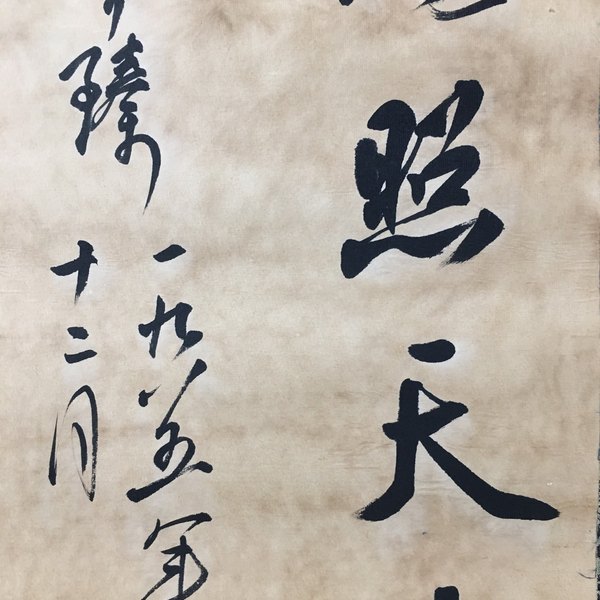 照天
臻
一九八五年
十二月